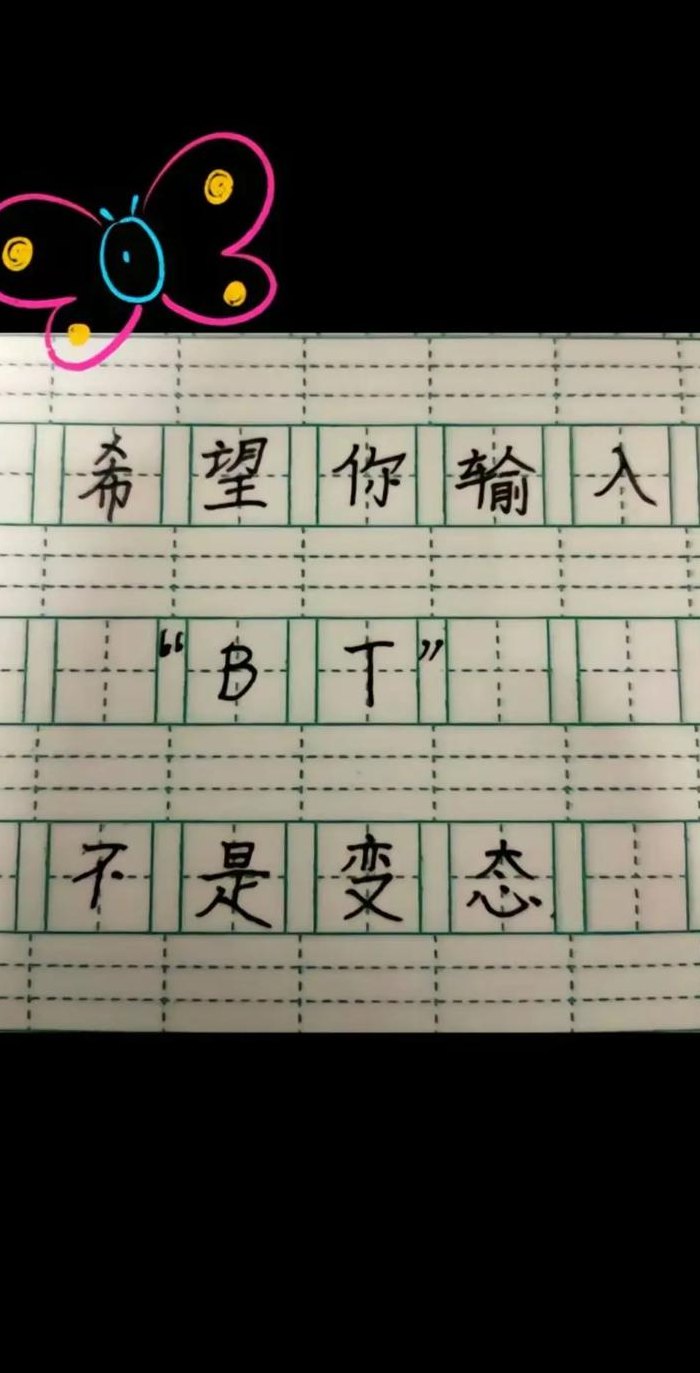 希望你输入
“BT”
不是变态